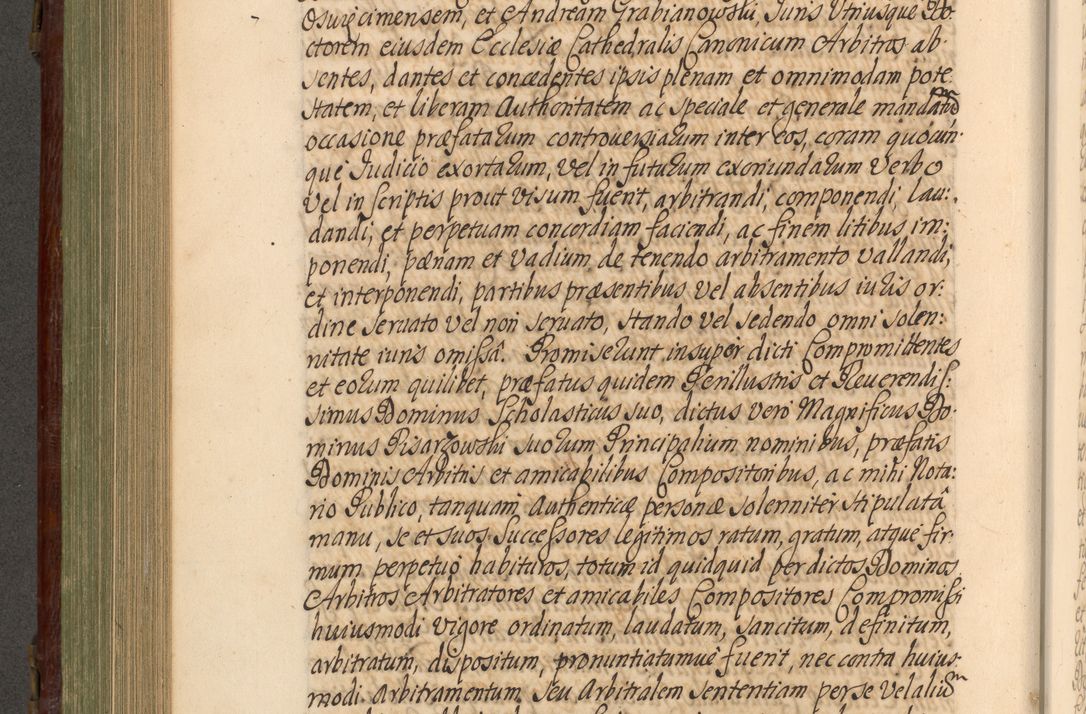 Osuięcimensem, et Andream Grabianowski, Juris Utriusque Do:
ctorem eiusdem Ecclesiæ Cathedralis Canonicum Arbitros ab-
sentes, dantes et concedentes ipsis plenam et omnimodam pote:
statem, et liberam Authoritatem ac speciale et generale mandatum
occasione præfatarum controversiarum inter eos, coram quocun-
que Judicio exortarum, vel in futurum exoriundarum verbo
vel in scriptis prout visum fuerit, arbitrandi, componendi, lau:
dandi, et perpetuam concordiam faciendi, ac finem litibus im:
ponendi, pœnam et vadium de tenendo arbitramento vallandi,
et interponendi, partibus præsentibus vel absentibus iuris or:
dine seruato vel non seruato, stando vel sedendo omni solen:
nitate iuris omissâ. Promiserunt insuper dicti Compromittentes
et eorum quilibet, præfatus quidem Perillustris et Reuerendis:
simus Dominus Scholasticus suo, dictus vero Magnificus Do-
minus Pisarzowski suorum Principalium nominibus, præfatis
Dominis Arbitris et amicabilibus Compositoribus, ac mihi Nota:
rio Publico, tanquam Authenticæ personæ solenniter stipulatâ
manu, se et suos Successores legitimos ratum, gratum, atque fir-
mum perpetuo habituros, totum id quidquid per dictos Dominos
Arbitros Arbitratores et amicabiles Compositores Compromissi
huiusmodi vigore ordinatum, laudatum, sancitum, definitum,
arbitratum, dispositum, pronuntiatumue fuerit, nec contra huius-
modi Arbitramentum seu Arbitralem sententiam per se vel alium